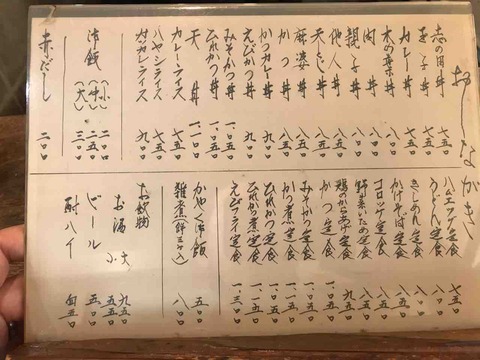 おしながき
志の田丼 七五〇
玉子丼 七五〇
カレー丼 七五〇
木の葉丼 八〇〇
肉丼 八〇〇
親子丼 八〇〇
他人丼 八〇〇
天とじ丼 八五〇
麻婆丼 八五〇
かつ丼 八五〇
かつカレー丼 九〇〇
みそかつ丼
ひれかつ丼
天丼 一、一〇〇
カレーライス 七五〇
ハヤシライス 七五〇
カツカレーライス 九〇〇
御飯(小) 二〇〇
(中) 二五〇
(大) 三〇〇
赤だし 二〇〇
ハムエッグ定食 七五〇
うどん定食 八〇〇
きしめん定食 八〇〇
かけそば定食 八〇〇
コロッケ定食 八五〇
野菜いため定食 八五〇
鶏のからあげ定食 九五〇
かつ定食
みそかつ定食
かつ煮定食
ひれかつ定食
ひれかつ煮定食
えびフライ定食 一、三〇〇
かやく御飯 五〇〇
雑煮(餅三ヶ入) 八〇〇
お飲物
お酒 大 九五〇
小 五五〇
ビール
酎ハイ